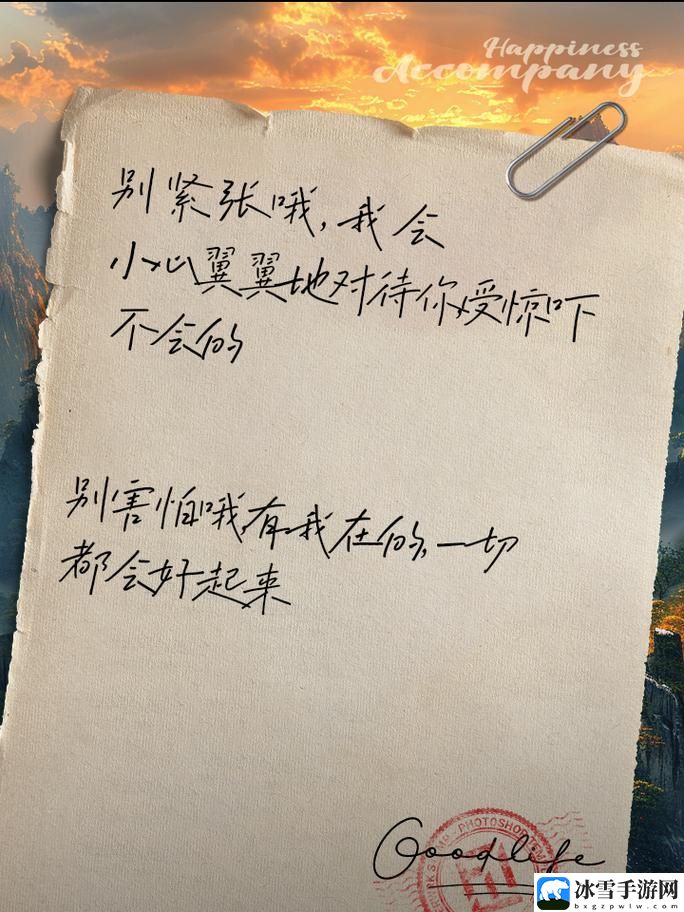 Happiness
Accompany
别紧张哦,我会
小心翼翼地对待你,受惊吓
不会的
别害怕哦,有我在的,一切
都会好起来
PHOTOSHOP
Goodlife
冰雪手游网
bxgzpwlw.com